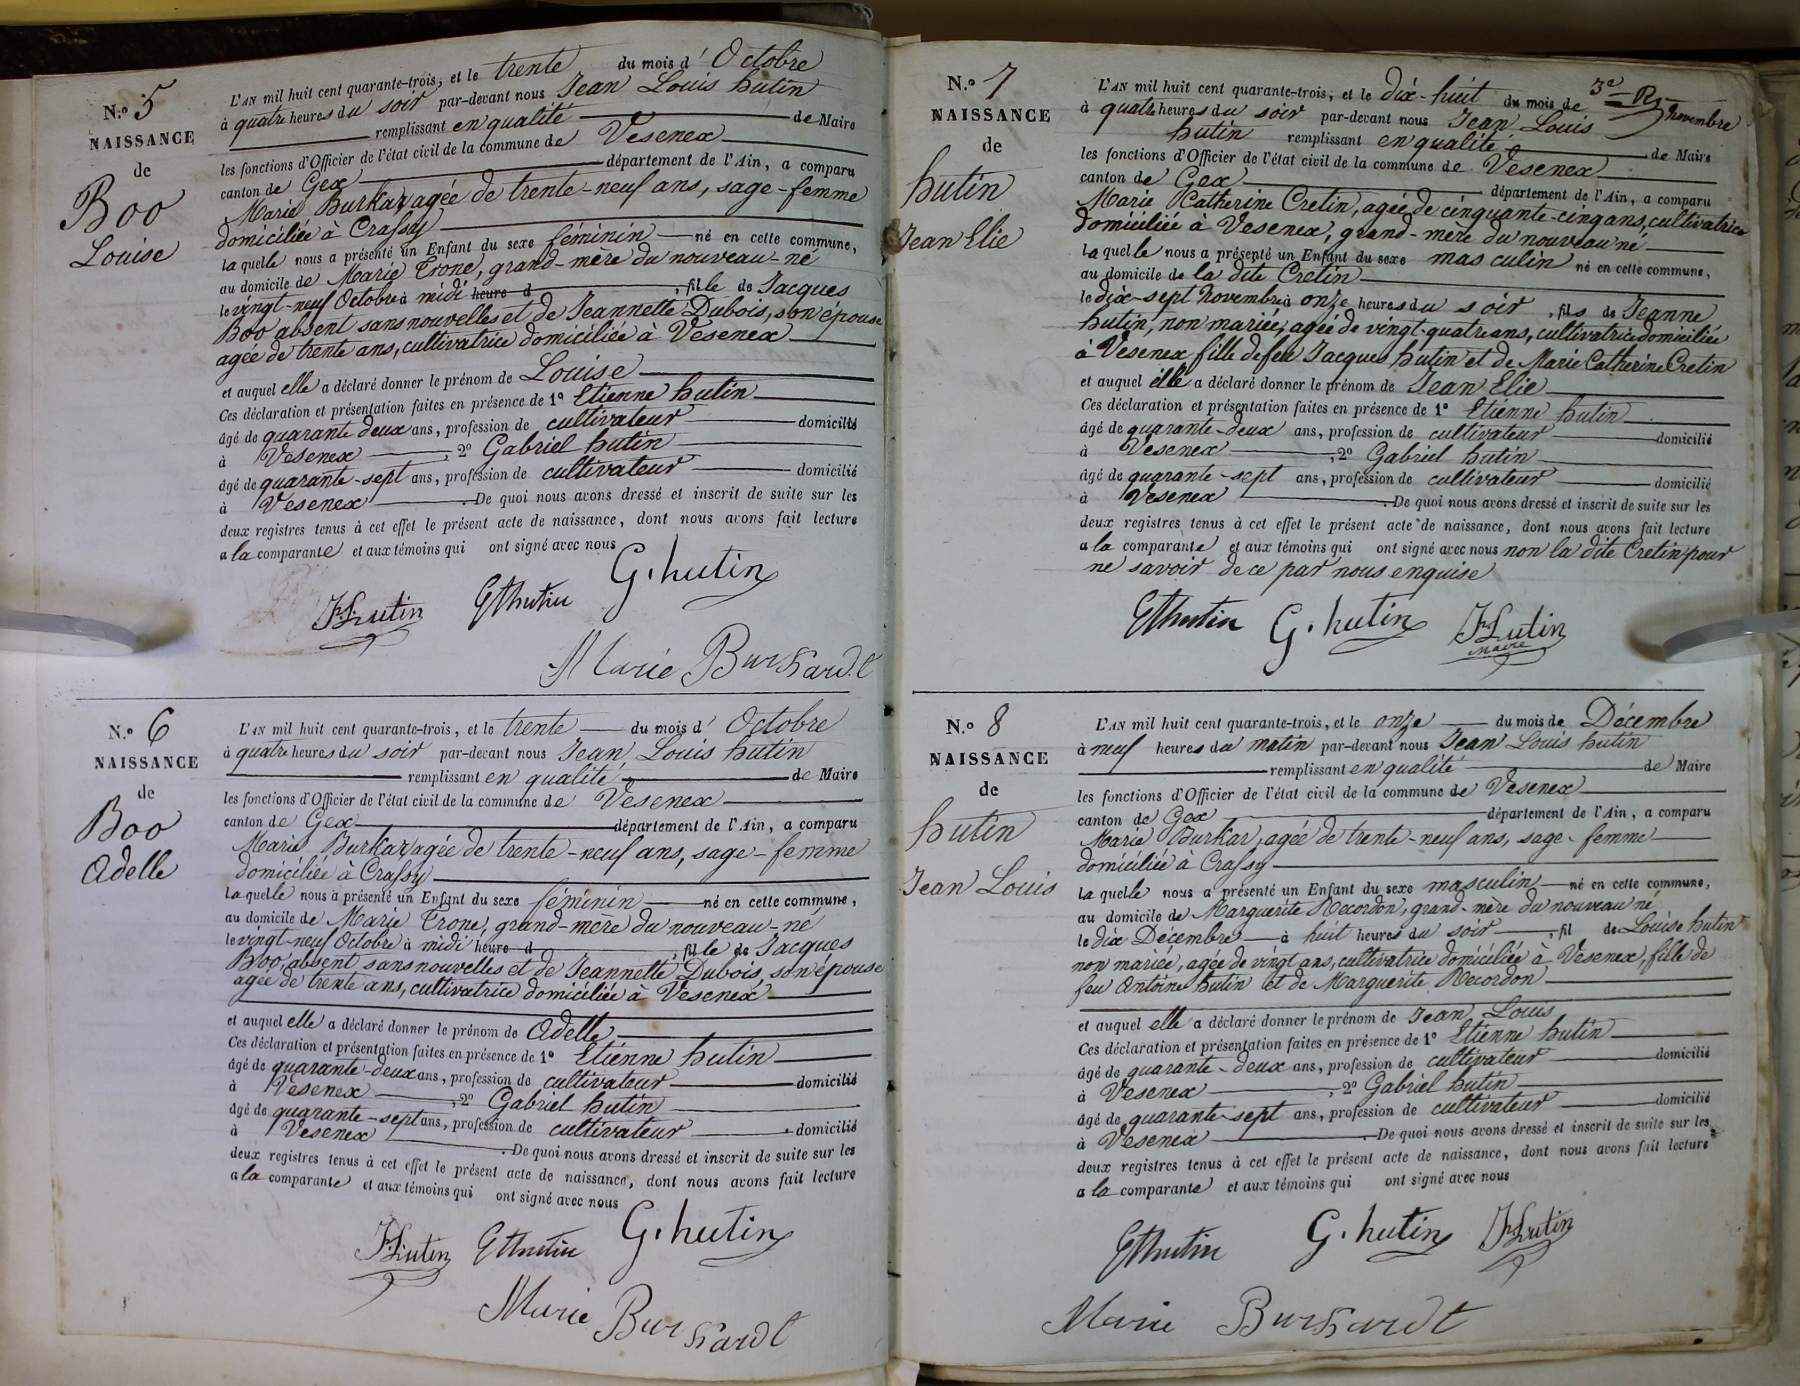 N.o 5
NAISSANCE
de
Boo
Louise
L'AN mil huit cent quarante-trois, et le trente du mois d' Octobre
à quatre heures du soir par-devant nous Jean Louis hutin
remplissant en qualité de Maire
les fonctions d'Officier de l'état civil de la commune de Vesenex
canton de Gex département de l'Ain, a comparu
Marie Burkar, agée de trente-neuf ans, sage-femme
domiciliée à Crassy
laquelle nous a présenté un Enfant du sexe féminin né en cette commune,
au domicile de Marie Trone, grand-mère du nouveau-né
le vingt-neuf Octobre à midi heure d , fille de Jacques
Boo absent sans nouvelles et de Jeannette Dubois, son épouse
agée de trente ans, cultivatrice domiciliée à Vesenex
et auquel elle a déclaré donner le prénom de Louise
Ces déclaration et présentation faites en présence de 1o Etienne hutin
âgé de quarante deux ans, profession de cultivateur domicilié
à Vesenex , 2o Gabriel hutin
âgé de quarante-sept ans, profession de cultivateur domicilié
à Vesenex . De quoi nous avons dressé et inscrit de suite sur les
deux registres tenus à cet effet le présent acte de naissance, dont nous avons fait lecture
a la comparante et aux témoins qui ont signé avec nous
G. hutin
JLhutin Ethutin
Marie Burkardt
N.o 6
NAISSANCE
de
Boo
Adelle
L'AN mil huit cent quarante-trois, et le trente du mois d' Octobre
à quatre heures du soir par-devant nous Jean Louis hutin
remplissant en qualité de Maire
les fonctions d'Officier de l'état civil de la commune de Vesenex
canton de Gex département de l'Ain, a comparu
Marie Burkar, agée de trente-neuf ans, sage-femme
domiciliée à Crassy
laquelle nous a présenté un Enfant du sexe féminin né en cette commune,
au domicile de Marie Trone, grand-mère du nouveau-né
le vingt-neuf Octobre à midi heure d , fille de Jacques
Boo, absent sans nouvelles et de Jeannette Dubois, son épouse
agée de trente ans, cultivatrice domiciliée à Vesenex
et auquel elle a déclaré donner le prénom de Adelle
Ces déclaration et présentation faites en présence de 1o Etienne hutin
âgé de quarante-deux ans, profession de cultivateur domicilié
à Vesenex , 2o Gabriel hutin
âgé de quarante-sept ans, profession de cultivateur domicilié
à Vesenex . De quoi nous avons dressé et inscrit de suite sur les
deux registres tenus à cet effet le présent acte de naissance, dont nous avons fait lecture
a la comparante et aux témoins qui ont signé avec nous
JLhutin Ethutin G. hutin
Marie Burkardt
N.o 7
NAISSANCE
de
hutin
Jean Elie
3e R
L'AN mil huit cent quarante-trois, et le dix-huit du mois de novembre
à quatre heures du soir par-devant nous Jean Louis
hutin remplissant en qualité de Maire
les fonctions d'Officier de l'état civil de la commune de Vesenex
canton de Gex département de l'Ain, a comparu
Marie Catherine Cretin, agée de cinquante-cinq ans, cultivatrice
domiciliée à Vesenex, grand-mère du nouveau né
laquelle nous a présenté un Enfant du sexe masculin né en cette commune,
au domicile de la dite Cretin
le dix-sept novembre à onze heures du soir , fils de Jeanne
hutin, non mariée, agée de vingt-quatre ans, cultivatrice domiciliée
à Vesenex fille de feu Jacques hutin et de Marie Catherine Cretin
et auquel elle a déclaré donner le prénom de Jean Elie
Ces déclaration et présentation faites en présence de 1o Etienne hutin
âgé de quarante-deux ans, profession de cultivateur domicilié
à Vesenex , 2o Gabriel hutin
âgé de quarante-sept ans, profession de cultivateur domicilié
à Vesenex . De quoi nous avons dressé et inscrit de suite sur les
deux registres tenus à cet effet le présent acte de naissance, dont nous avons fait lecture
a la comparante et aux témoins qui ont signé avec nous non la dite Cretin pour
ne savoir de ce par nous enquise
Ethutin G. hutin JLhutin
maire
N.o 8
NAISSANCE
de
hutin
Jean Louis
L'AN mil huit cent quarante-trois, et le onze du mois de Décembre
à neuf heures du matin par-devant nous Jean Louis hutin
remplissant en qualité de Maire
les fonctions d'Officier de l'état civil de la commune de Vesenex
canton de Gex département de l'Ain, a comparu
Marie Burkar, agée de trente-neuf ans, sage-femme
domiciliée à Crassy
laquelle nous a présenté un Enfant du sexe masculin né en cette commune,
au domicile de Marguerite Decordon, grand-mère du nouveau né
le dix Décembre à huit heures du soir , fil de Louise hutin
non mariée, agée de vingt ans, cultivatrice domiciliée à Vesenex, fille de
feu Antoine hutin et de Marguerite Decordon
et auquel elle a déclaré donner le prénom de Jean Louis
Ces déclaration et présentation faites en présence de 1o Etienne hutin
âgé de quarante-deux ans, profession de cultivateur domicilié
à Vesenex , 2o Gabriel hutin
âgé de quarante-sept ans, profession de cultivateur domicilié
à Vesenex . De quoi nous avons dressé et inscrit de suite sur les
deux registres tenus à cet effet le présent acte de naissance, dont nous avons fait lecture
a la comparante et aux témoins qui ont signé avec nous
Ethutin G. hutin JLhutin
Marie Burkardt